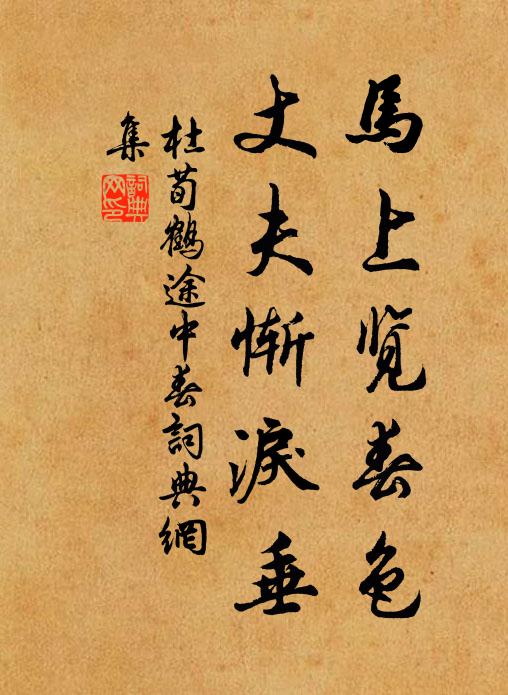 馬上覽春色
丈夫慚淚垂
杜荀鶴途中春詞典網
集
詞典网印